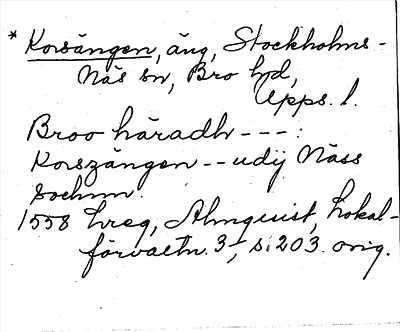 * Korsängen, äng, Stockholms-
Näs sn, Bro hd,
Upps. l.
Broo häradh --- :
Korszängen -- udij Näss
sochnn.
1558 hreg, Almquist, Lokal-
förvaltn. 3, s. 203. orig.